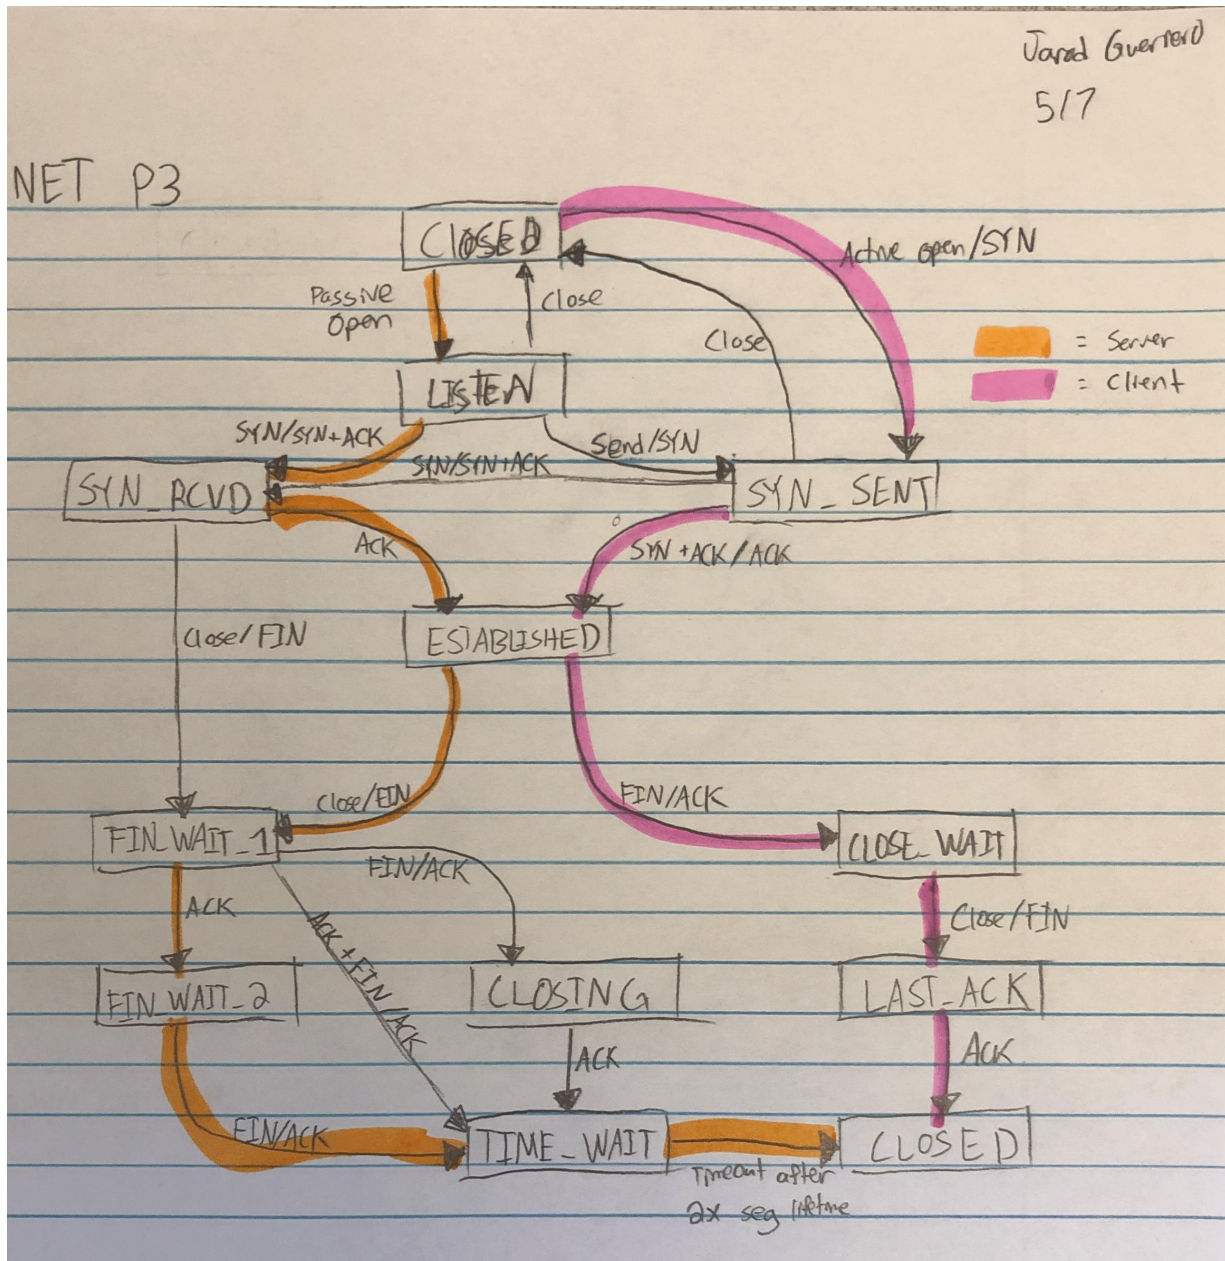 Jarad Guerrero
5/7
NET P3
CLOSED
Active open/SYN
Passive
Open
Close
Close
= Server
= Client
LISTEN
SYN/SYN+ACK
Send/SYN
SYN/SYN+ACK
SYN_RCVD
SYN_SENT
ACK
SYN+ACK/ACK
Close/FIN
ESTABLISHED
Close/FIN
FIN/ACK
FIN_WAIT_1
CLOSE_WAIT
FIN/ACK
ACK
ACK+FIN/ACK
Close/FIN
FIN_WAIT_2
CLOSING
LAST_ACK
ACK
ACK
FIN/ACK
TIME_WAIT
CLOSED
Timeout after
2x seg lifetime